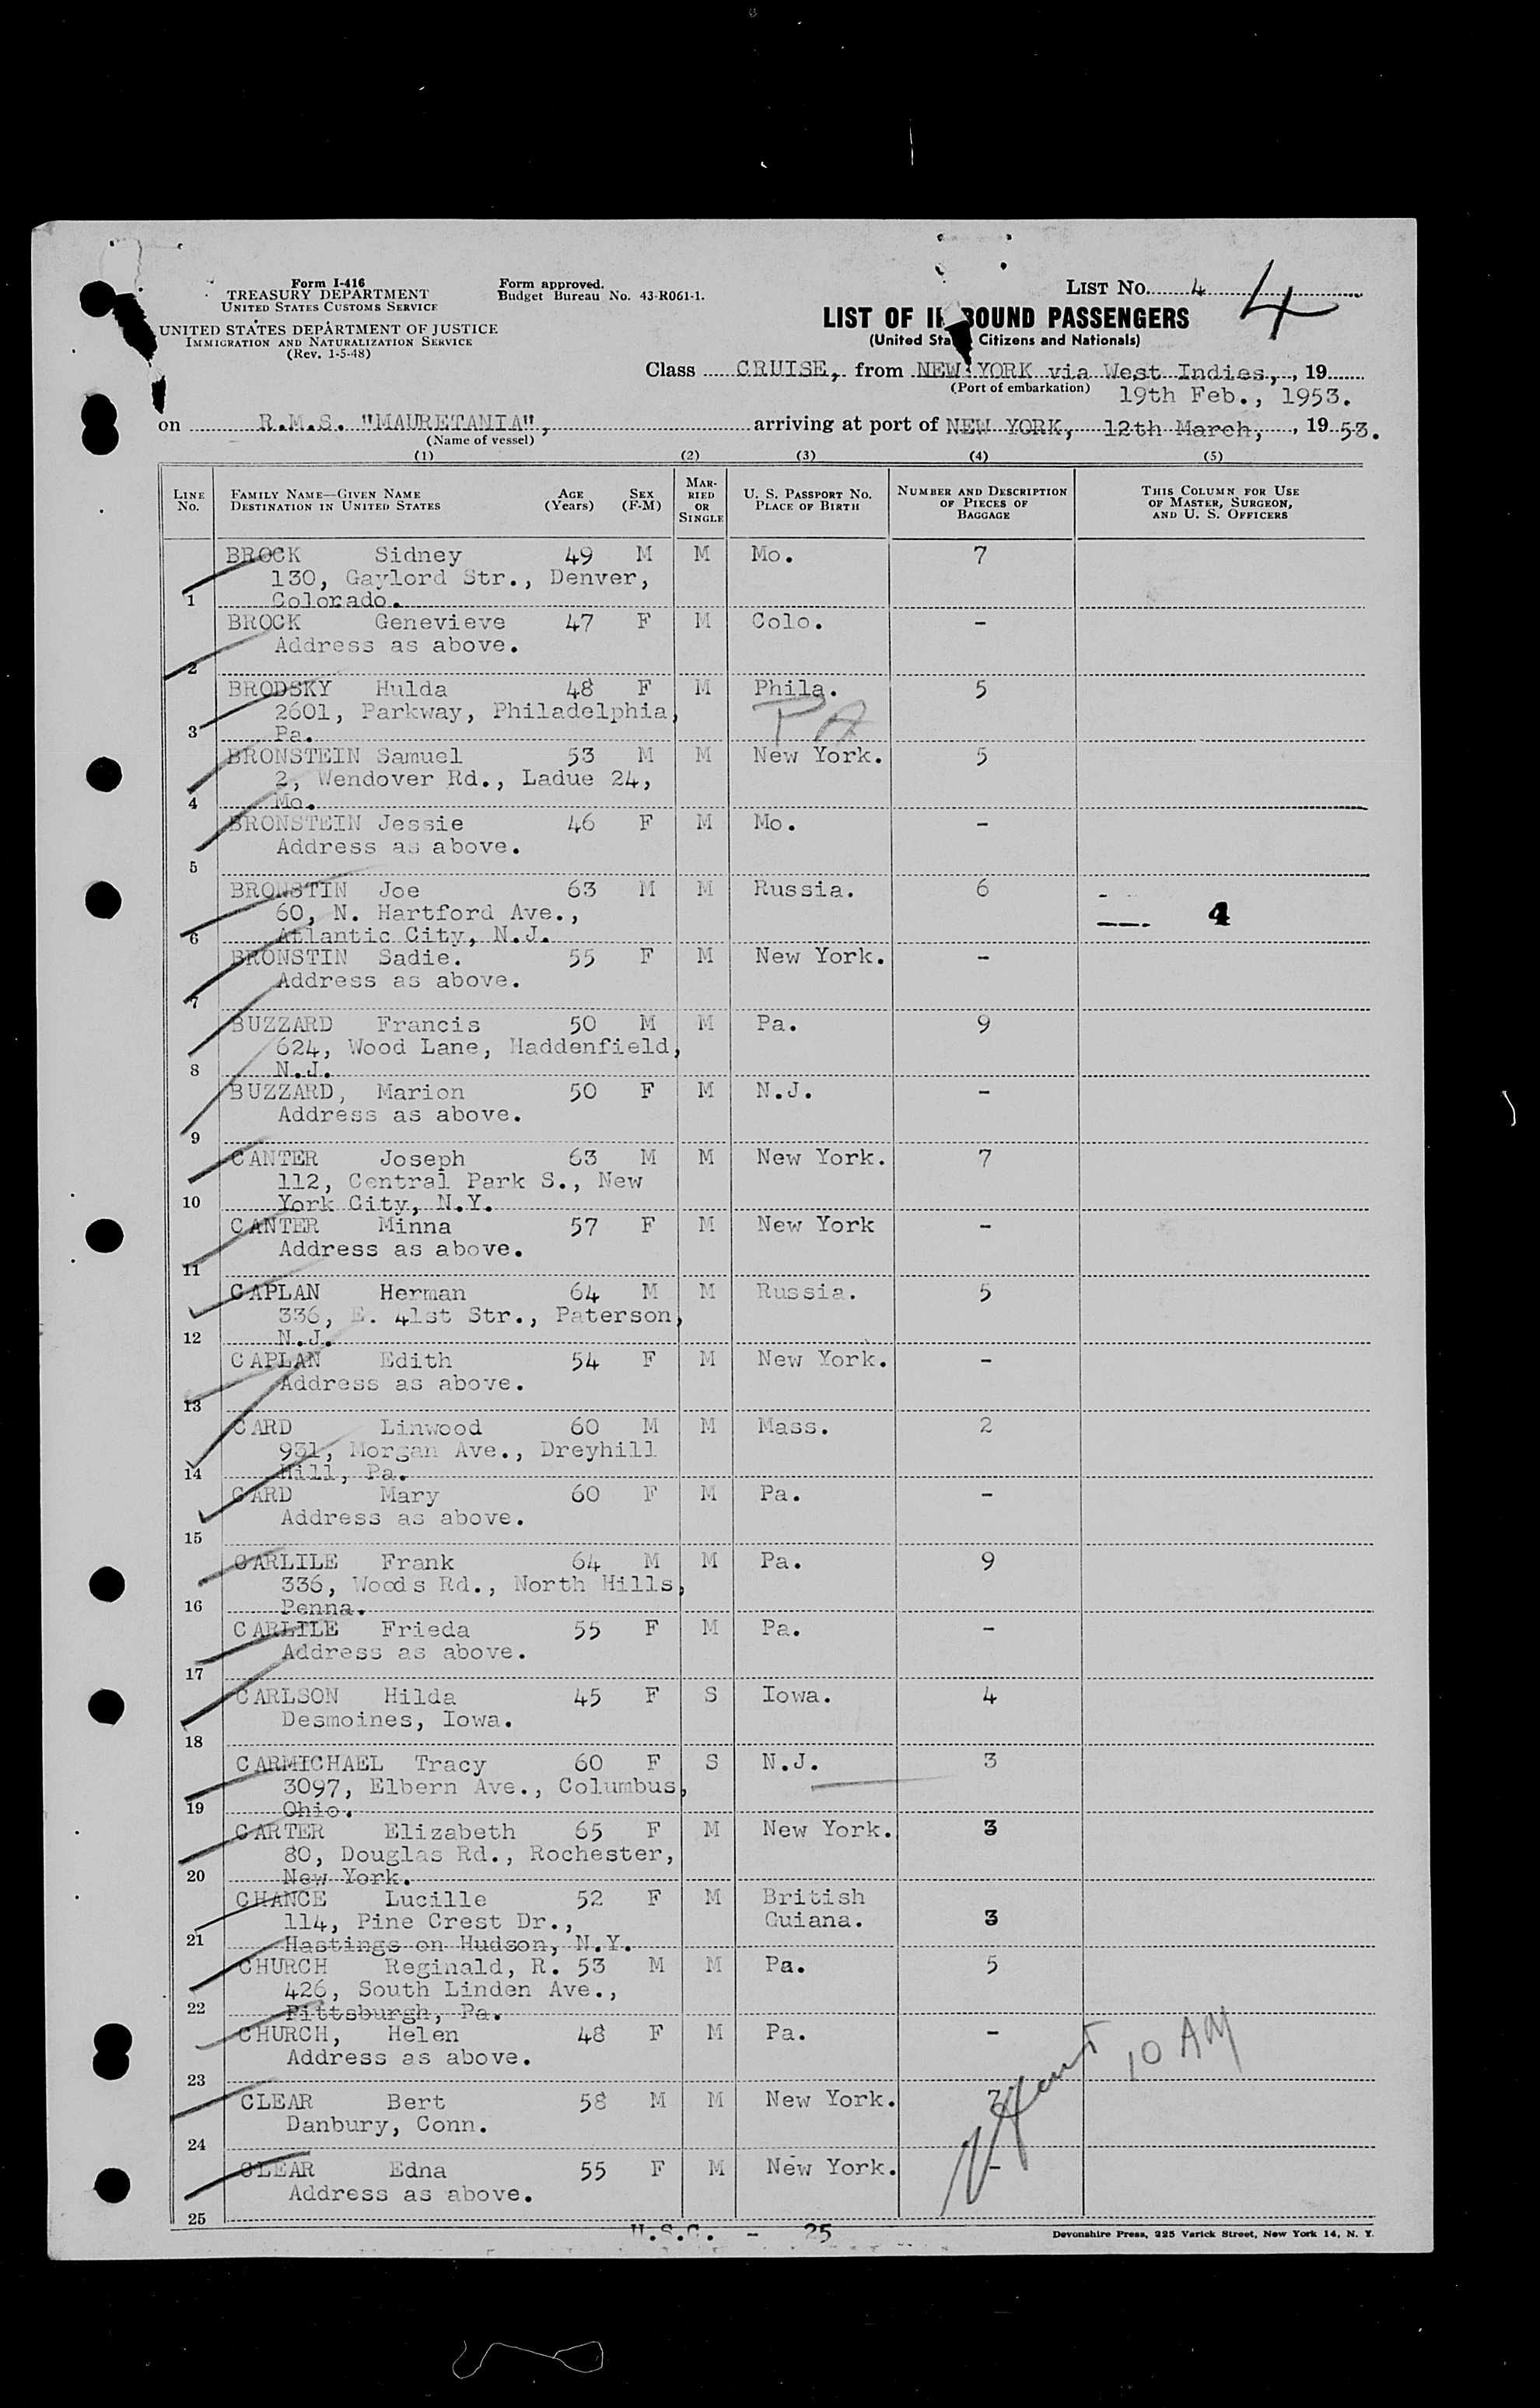 Form I-416
TREASURY DEPARTMENT
UNITED STATES CUSTOMS SERVICE
UNITED STATES DEPARTMENT OF JUSTICE
IMMIGRATION AND NATURALIZATION SERVICE
(Rev. 1-5-48)
Form approved.
Budget Bureau No. 43-R061-1.
LIST NO. 4 4
LIST OF INBOUND PASSENGERS
(United States Citizens and Nationals)
Class CRUISE, from NEW YORK via West Indies, , 19
(Port of embarkation) 19th Feb., 1953.
on R.M.S. "MAURETANIA", arriving at port of NEW YORK, 12th March, , 19 53.
(Name of vessel)
(1) (2) (3) (4) (5)
LINE NO. FAMILY NAME—GIVEN NAME DESTINATION IN UNITED STATES AGE (YEARS) SEX (F-M) MARRIED OR SINGLE U. S. PASSPORT NO. PLACE OF BIRTH NUMBER AND DESCRIPTION OF PIECES OF BAGGAGE THIS COLUMN FOR USE OF MASTER, SURGEON, AND U. S. OFFICERS
BROCK Sidney 49 M M Mo. 7
130, Gaylord Str., Denver,
1 Colorado.
BROCK Genevieve 47 F M Colo. -
Address as above.
2
BRODSKY Hulda 48 F M Phila. 5
2601, Parkway, Philadelphia, PA
3 Pa.
BRONSTEIN Samuel 53 M M New York. 5
2, Wendover Rd., Ladue 24,
4 Mo.
BRONSTEIN Jessie 46 F M Mo. -
Address as above.
5
BRONSTIN Joe 63 M M Russia. 6
60, N. Hartford Ave., 4
6 Atlantic City, N.J.
BRONSTIN Sadie. 55 F M New York. -
Address as above.
7
BUZZARD Francis 50 M M Pa. 9
624, Wood Lane, Haddenfield,
8 N.J.
BUZZARD, Marion 50 F M N.J. -
Address as above.
9
CANTER Joseph 63 M M New York. 7
112, Central Park S., New
10 York City, N.Y.
CANTER Minna 57 F M New York -
Address as above.
11
CAPLAN Herman 64 M M Russia. 5
336, E. 41st Str., Paterson,
12 N.J.
CAPLAN Edith 54 F M New York. -
Address as above.
13
CARD Linwood 60 M M Mass. 2
931, Morgan Ave., Dreyhill
14 Hill, Pa.
CARD Mary 60 F M Pa. -
Address as above.
15
CARLILE Frank 64 M M Pa. 9
336, Woods Rd., North Hills,
16 Penna.
CARLILE Frieda 55 F M Pa. -
Address as above.
17
CARLSON Hilda 45 F S Iowa. 4
Desmoines, Iowa.
18
CARMICHAEL Tracy 60 F S N.J. 3
3097, Elbern Ave., Columbus,
19 Ohio.
CARTER Elizabeth 65 F M New York. 3
80, Douglas Rd., Rochester,
20 New York.
CHANCE Lucille 52 F M British
114, Pine Crest Dr., Guiana. 3
21 Hastings on Hudson, N.Y.
CHURCH Reginald, R. 53 M M Pa. 5
426, South Linden Ave.,
22 Pittsburgh, Pa.
CHURCH, Helen 48 F M Pa. -
Address as above. 10 AM
23
CLEAR Bert 58 M M New York. 7
Danbury, Conn.
24
CLEAR Edna 55 F M New York. -
Address as above.
25
U.S.C. - 25
Devonshire Press, 225 Varick Street, New York 14, N. Y.